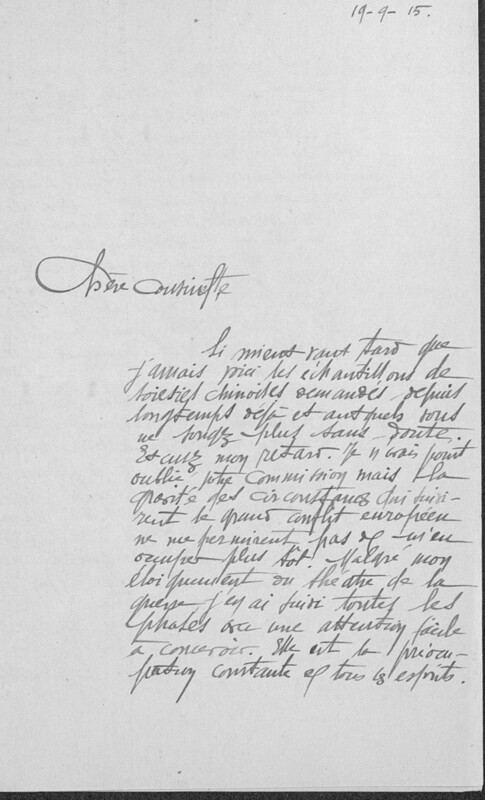 19-9-15.
Chère Cousinette
Si mieux vaut tard que
jamais voici les échantillons de
soieries chinoises demandés depuis
longtemps déjà et auxquels vous
ne songez plus sans doute.
Excusez mon retard. Je n'avais point
oublié votre Commission mais la
gravité des circonstances qui suivi-
rent le grand conflit européen
ne me permirent pas de m'en
occuper plus tôt. Malgré mon
éloignement du théâtre de la
guerre j'en ai suivi toutes les
phases avec une attention facile
à concevoir. Elle est la préoccu-
pation constante de tous les esprits.